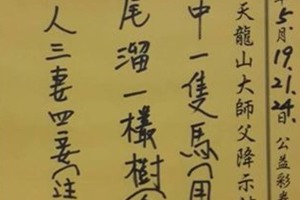 年5月19.21.24.日 公益彩券
天龍山大師父降示
中一隻馬(用
尾溜一欉樹(
人三妻四妾(注